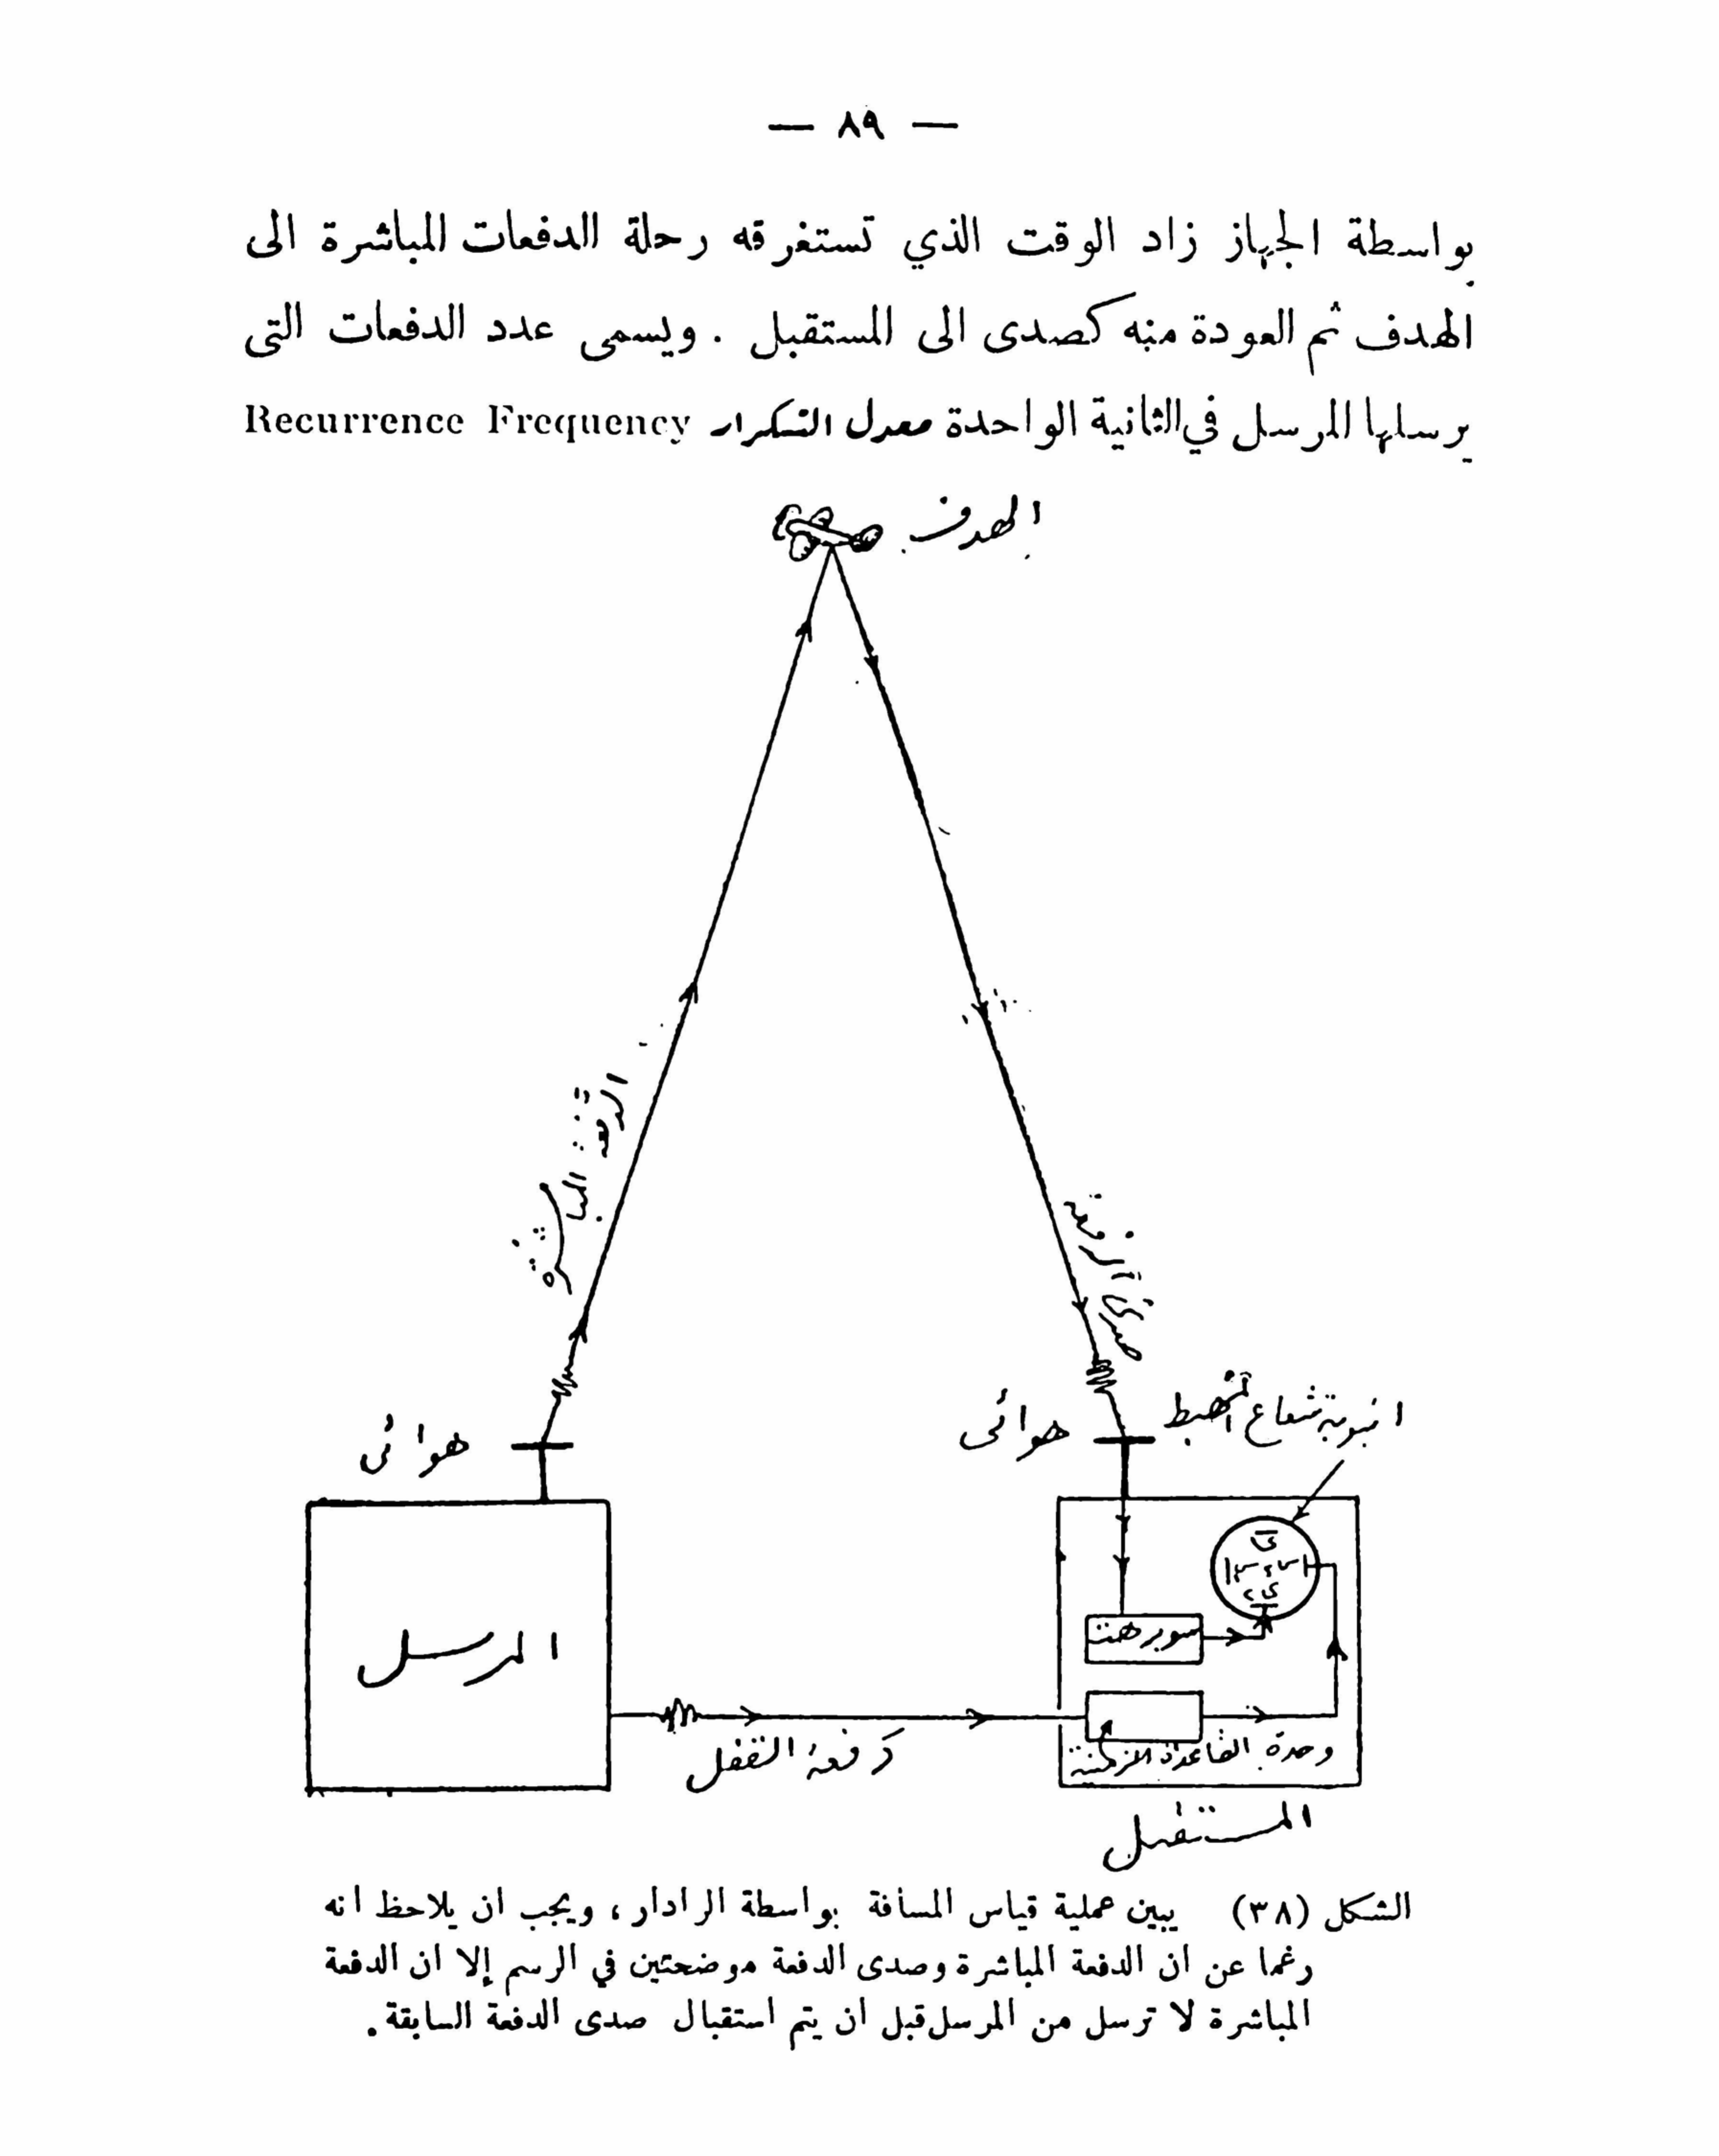 — ٨٩ —
بواسطة الجهاز زاد الوقت الذي تستغرقه رحلة الدفعات المباشرة الى
الهدف ثم العودة منه كصدى الى المستقبل . ويسمى عدد الدفعات التى
يرسلها المرسل في الثانية الواحدة معدل التكرار Recurrence Frequency
الهدف
الدفعة المباشرة
صدى الدفعة
هوائى
هوائى
انبوبة شعاع المهبط
سوبرهت
المرسل
دفعة القفل
وحدة القاعدة الزمنية
المستقبل
الشكل (٣٨) يبين عملية قياس المسافة بواسطة الرادار ، ويجب ان يلاحظ انه
رغما عن ان الدفعة المباشرة وصدى الدفعة موضحتين في الرسم إلا ان الدفعة
المباشرة لا ترسل من المرسل قبل ان يتم استقبال صدى الدفعة السابقة .